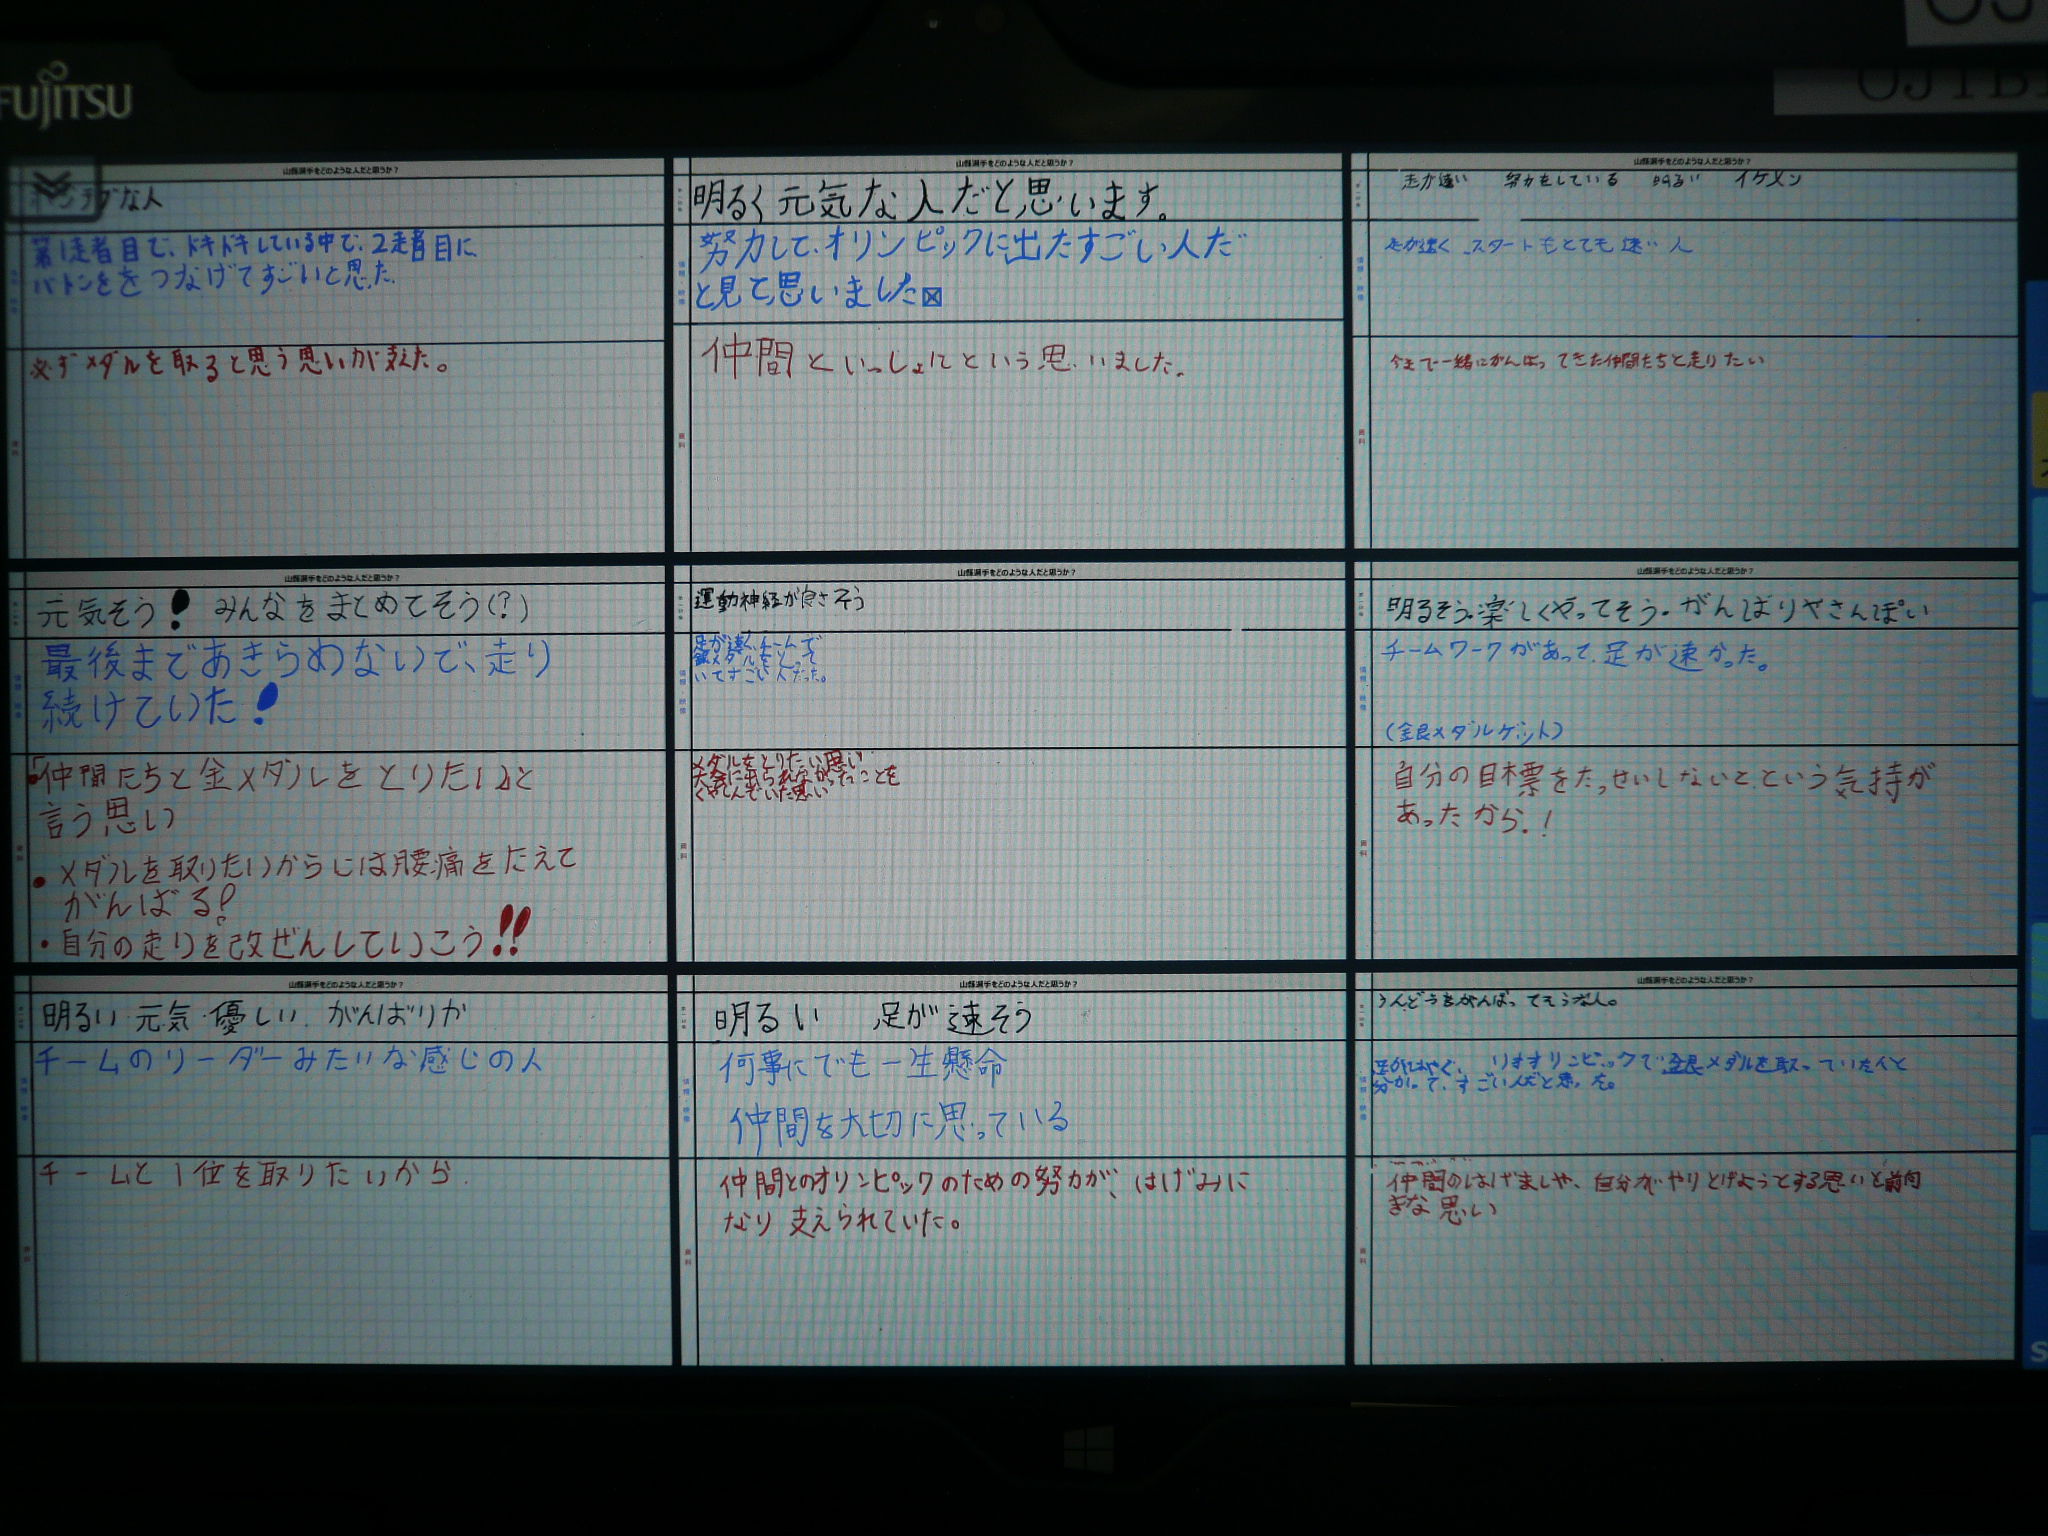 FUJITSU
山縣選手をどのような人だと思うか？
な人
第1走者目で、ドキドキしている中で、2走者目に
バトンをを つなげてすごいと思た
必ずメダルを取ると思う思いが支えた。
山縣選手をどのような人だと思うか？
明るく元気な人だと思います。
情報・映像
努力して、オリンピックに出たすごい人だ
と見て思いました
資料
仲間といっしょにという思いました。
山縣選手をどのような人だと思うか？
走が速い 努力をしている 明るい イケメン
情報・映像
走が速く スタートもとても速い人
資料
今まで一緒にがんばってきた仲間たちと走りたい
山縣選手をどのような人だと思うか？
元気そう！みんなをまとめてそう(?)
最後まであきらめないで、走り
続けていた！
仲間たちと金メダルをとりたいと
言う思い
・メダルを取りたいからには腰痛をたえて
がんばる！
・自分の走りを改ぜんしていこう!!
山縣選手をどのような人だと思うか？
運動神経が良さそう
情報・映像
足が速く、チームで
銀メダルをとって
いてすごい人だった。
資料
メダルをとりたい思い
大会に出られなかったことを
くやんでいた思い
山縣選手をどのような人だと思うか？
明るそう・楽しくやってそう・がんばりやさんぽい
情報・映像
チームワークがあって、足が速かった。
(銀メダルゲット)
資料
自分の目標をたっせいしないとという気持が
あったから.！
山縣選手をどのような人だと思うか？
明るい・元気・優しい・がんばりか
チームのリーダーみたいな感じの人
チームと1位を取りたいから
山縣選手をどのような人だと思うか？
明るい 足が速そう
情報・映像
何事にでも一生懸命
仲間を大切に思っている
資料
仲間とのオリンピックのための努力が、はげみに
なり支えられていた。
山縣選手をどのような人だと思うか？
うんどうをがんばってそうな人。
情報・映像
足がはやく、リオオリンピックで銀メダルを取っていた人と
分かって、すごい人だと思った。
資料
仲間のはげましや、自分がやりとげようとする思いと前向
きな思い